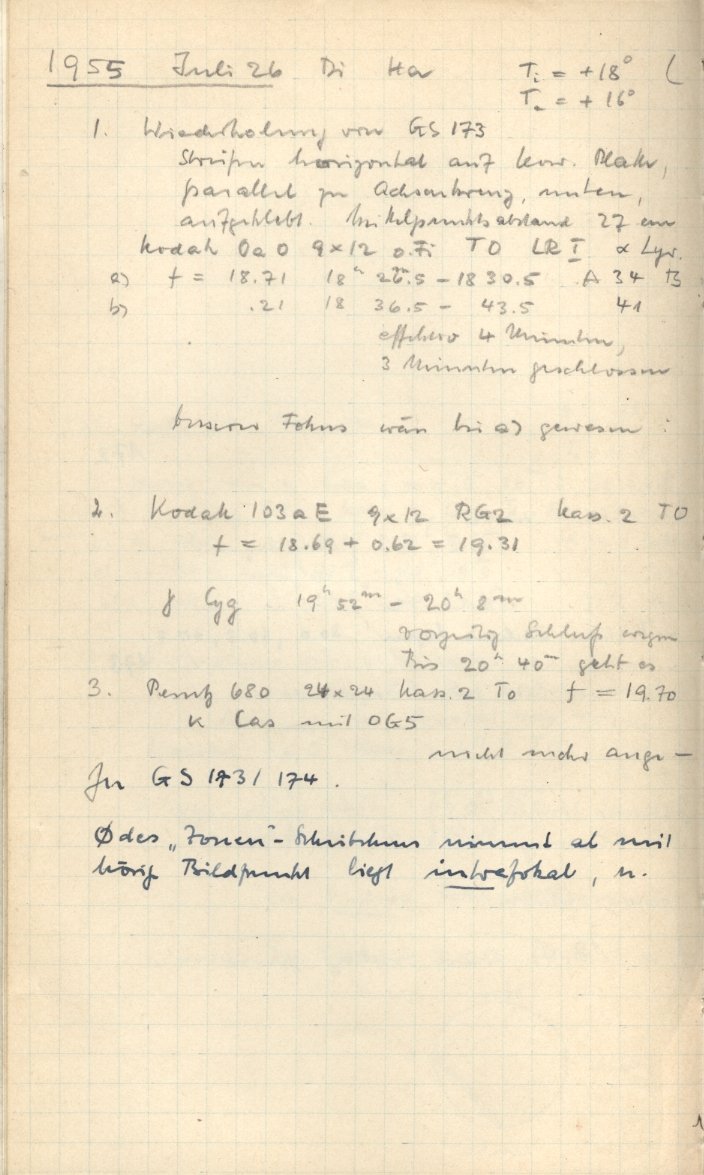 1955 Juli 26 Di Ha Ti = +18° (
Ta = +16°
1. Wiederholung von GS 173
Streifen horizontal auf Platte,
parallel zu Achsenkreuz, unten,
aufgeklebt. Mittelpunktsabstand 27 cm
Kodak OaO 9×12 o.Fi TO LRI α Lyr.
a) f = 18.71 18h 26m.5 – 18 30.5 A 34 B
b) .21 18 36.5 – 43.5 41
effektiv 4 Minuten,
3 Minuten geschlossen
besserer Fokus wäre bei a) gewesen :
2. Kodak 103aE 9×12 RG2 Kass. 2 TO
f = 18.69 + 0.62 = 19.31
γ Cyg 19h 52m – 20h 8m
vorzeitig Schluß wegen
Bis 20h 40m geht es
3. Perutz 680 24×24 Kass. 2 To f = 19.70
κ Cas mit OG5
nicht mehr ange–
Zu GS 173/174.
Ø des „Zonen“- nimmt ab mit
hörig Bildpunkt liegt intrafokal, u.